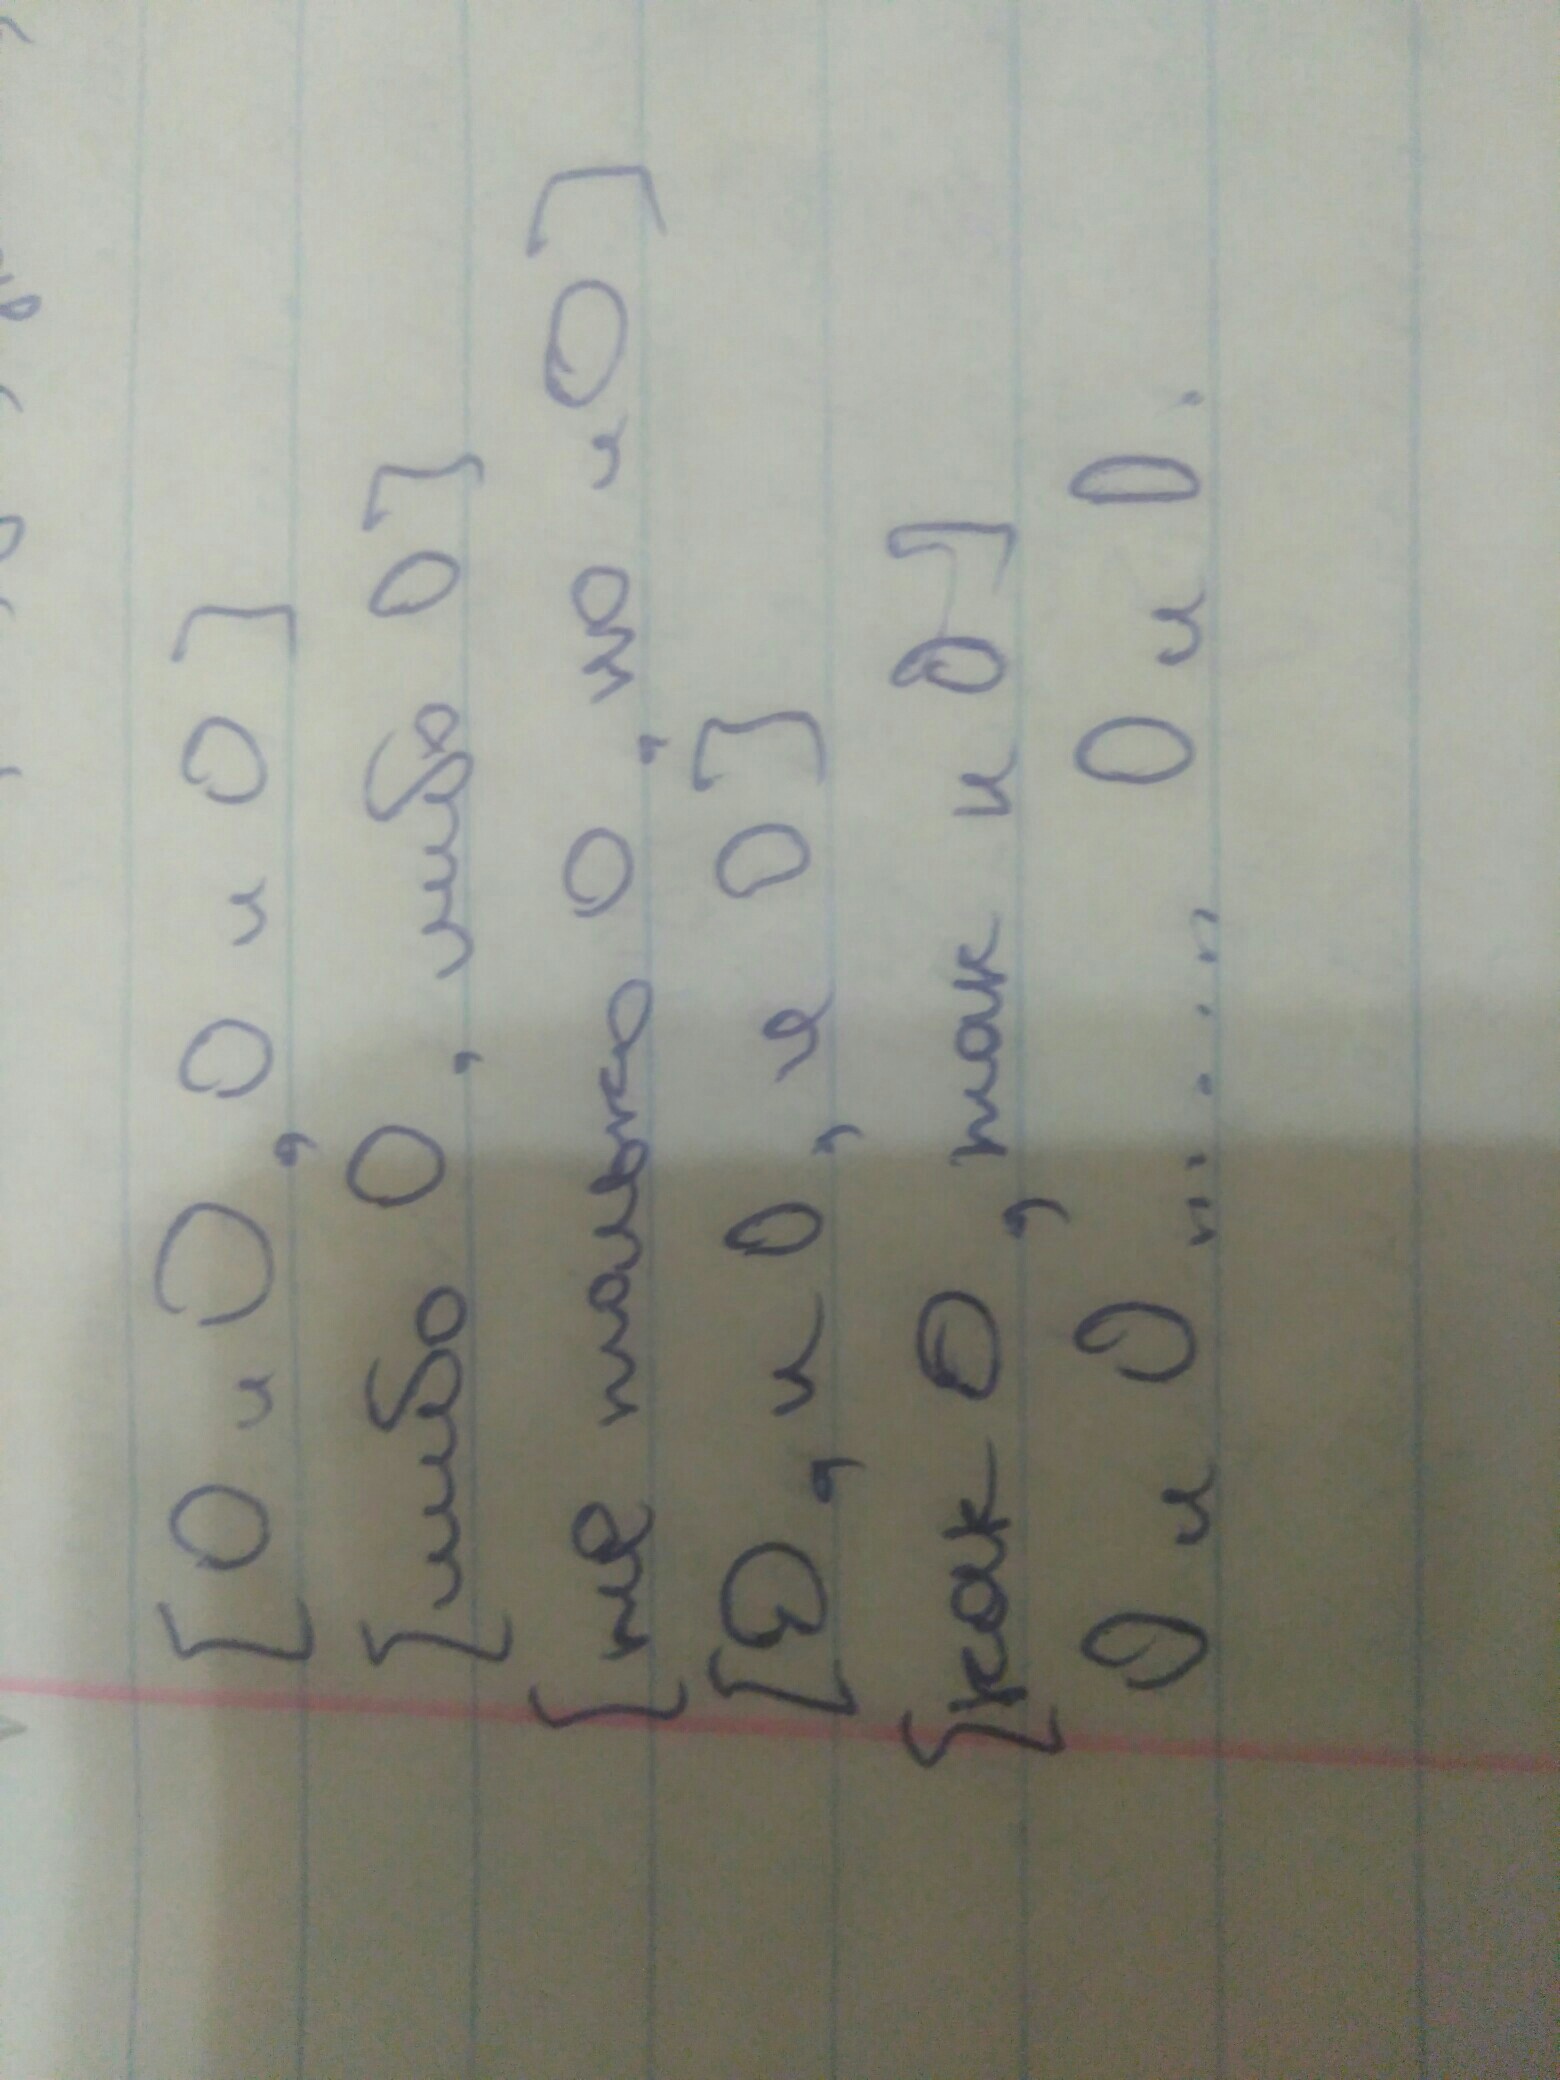 [О и О, О и О]
[либо О, либо О]
[не только О, но и О]
[О, и О, и О]
[как О, так и О]
О и О ........ О и О.